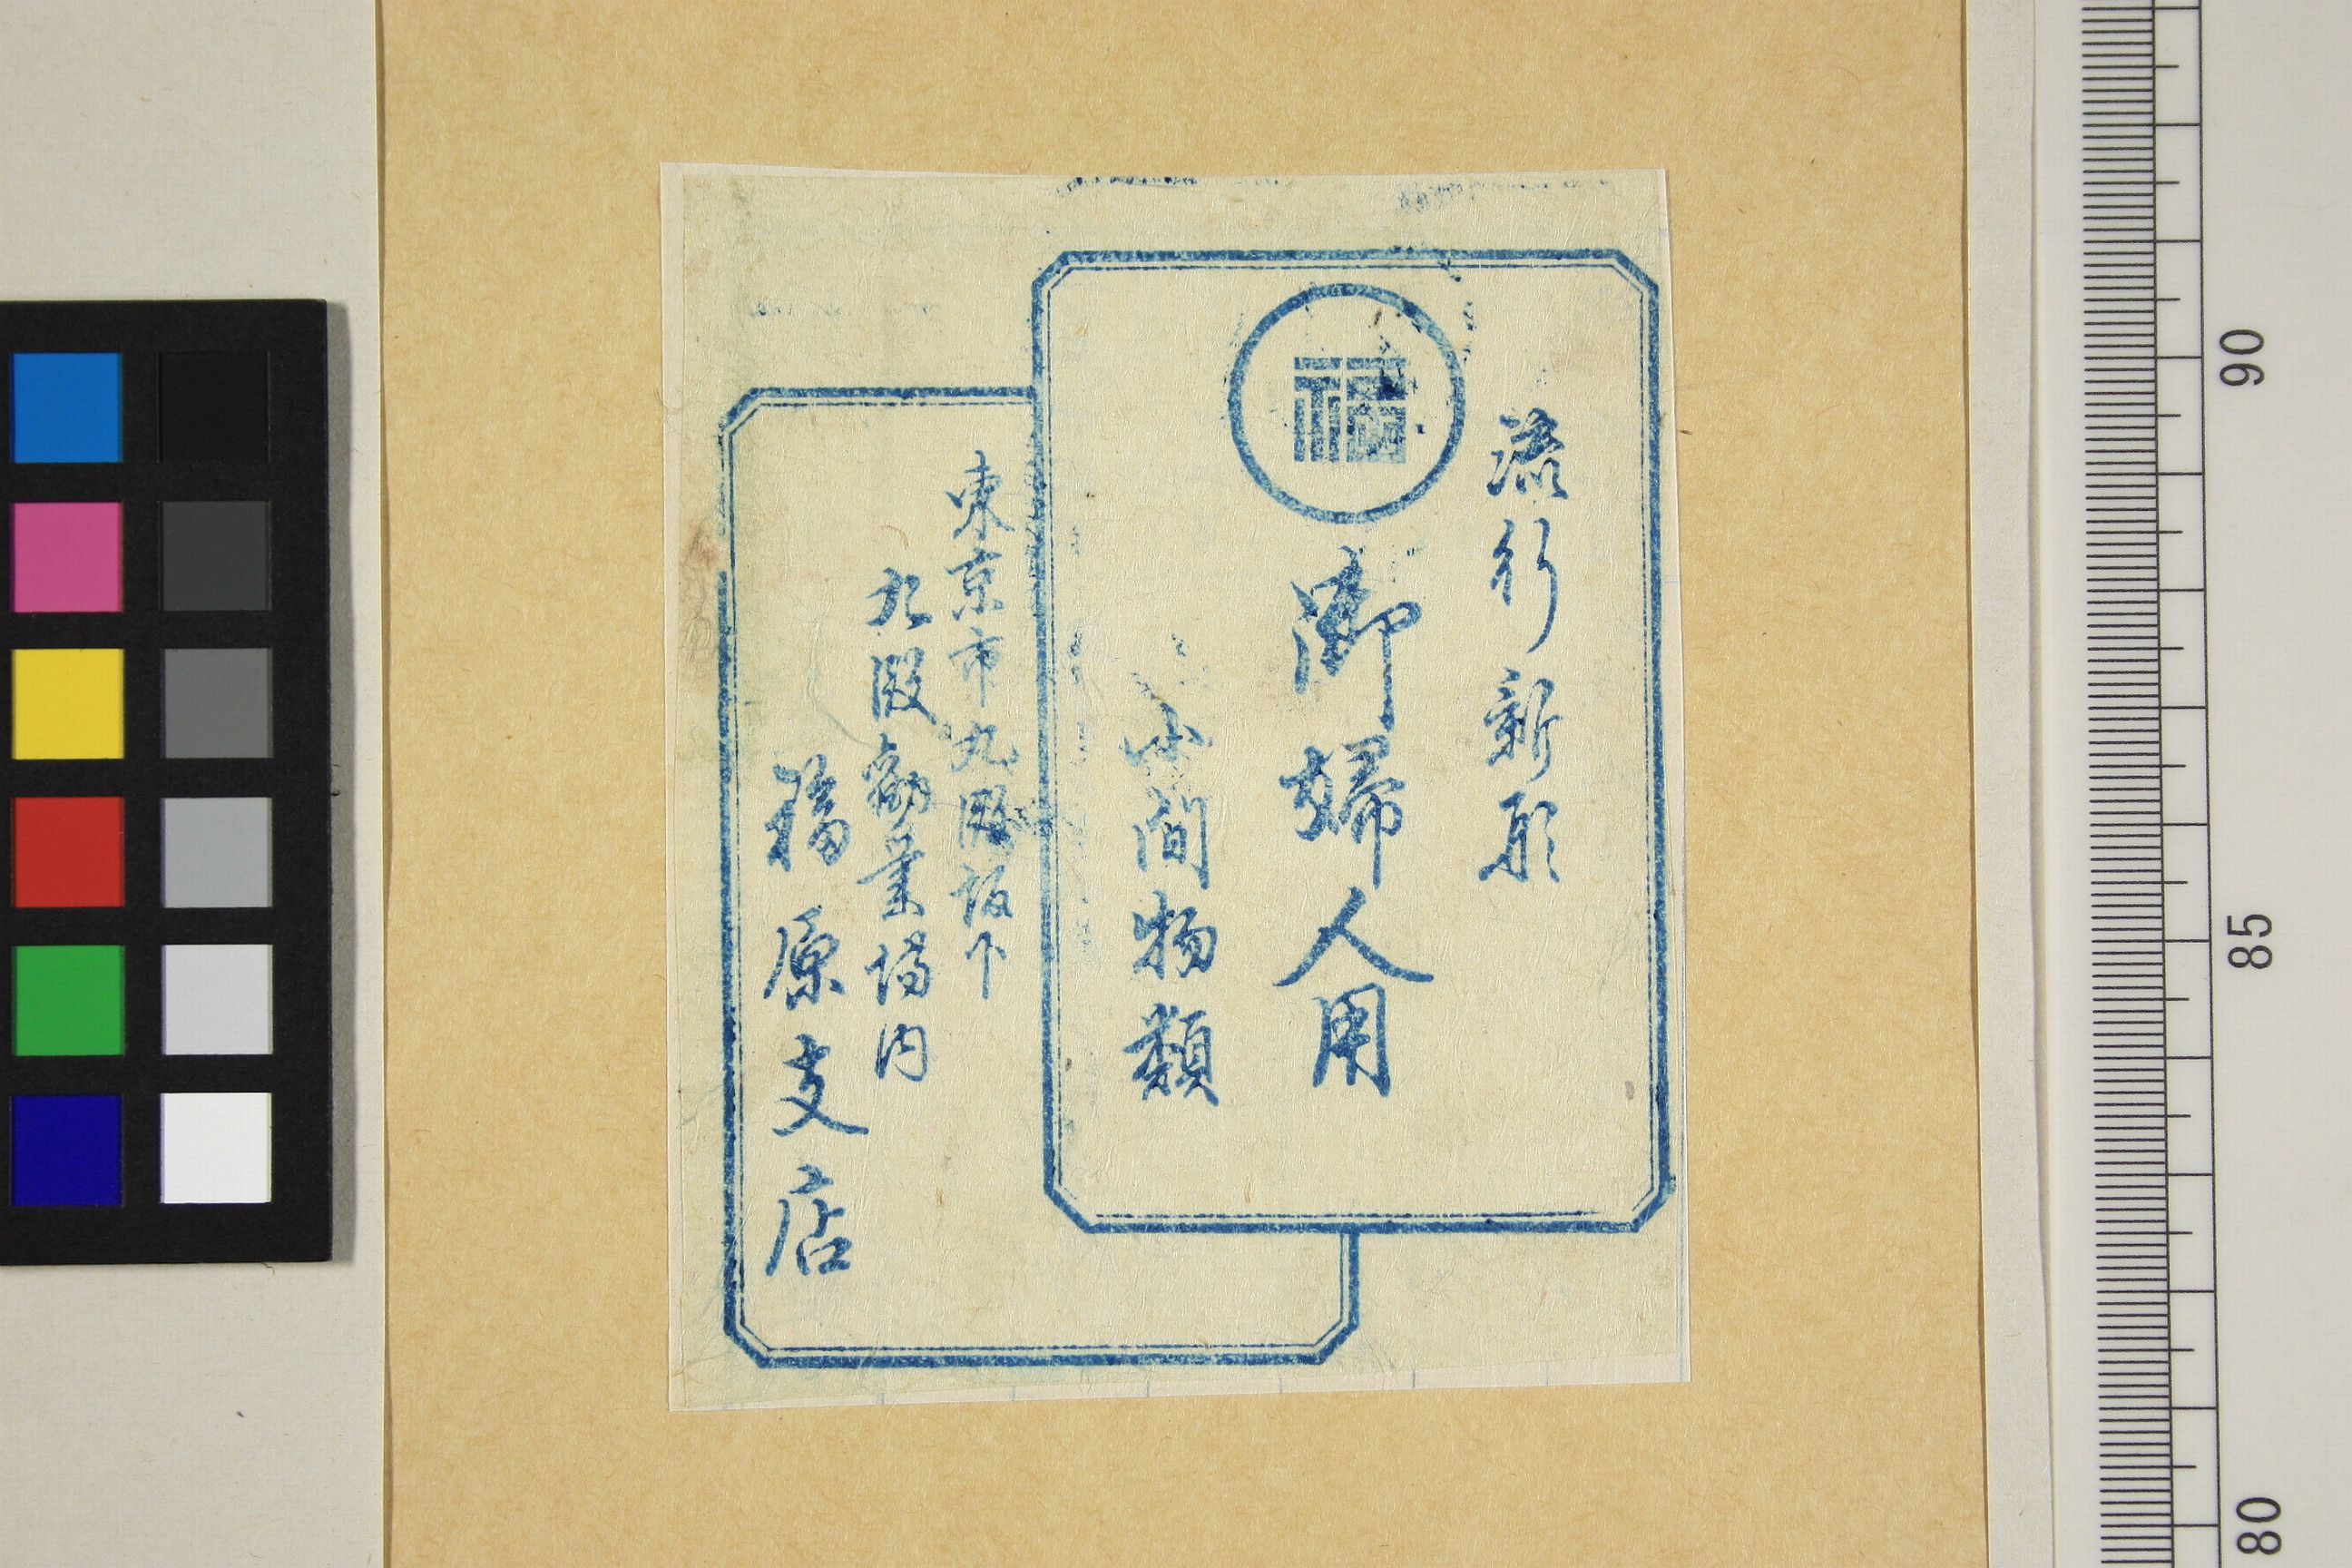 流行新形
福
御婦人用
小間物類
東京市九段坂下
九段勧業場内
福原支店
90
85
80